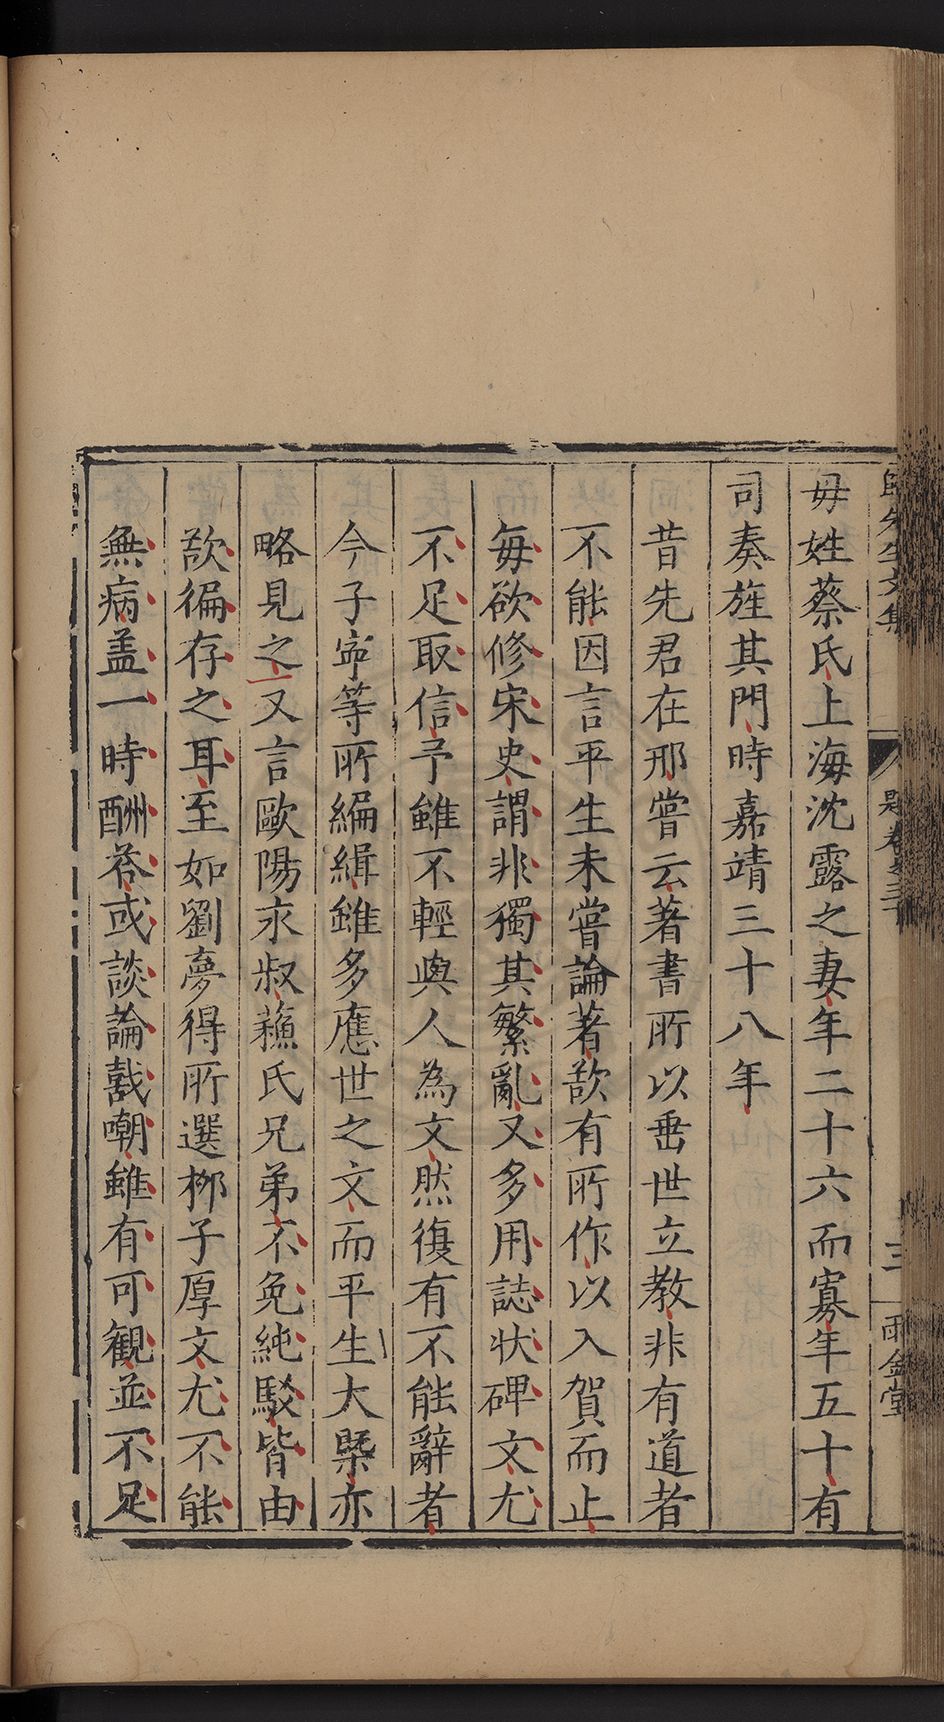 歸先生文集
題卷之三十
三
雨金堂
毋姓蔡氏上海沈露之妻年二十六而寡年五十有
司奏旌其門時嘉靖三十八年
昔先君在邢嘗云著書所以垂世立教非有道者
不能因言平生未嘗論著歆有所作以入賀而止
每欲修宋史謂非獨其繁亂又多用誌状碑文尤
不足取信予雖不輕與人為文然復有不能辭者
今子寧等所編緝雖多應世之文而平生大槩亦
略見之又言歐陽永叔蘓氏兄弟不免純駁皆由
歆徧存之耳至如劉夢得所選栁子厚文尤不能
無病盖一時酬荅或談論戱嘲雖有可観並不足